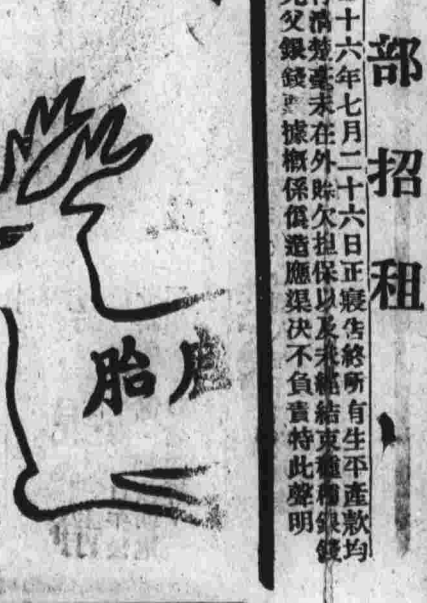 部招租
十六年七月二十六日正寢告終所有生平產款均
清楚毫未在外賒欠担保以及未經結束種種銀錢
父銀錢 據概係僞造應渠決不負責特此聲明
胎